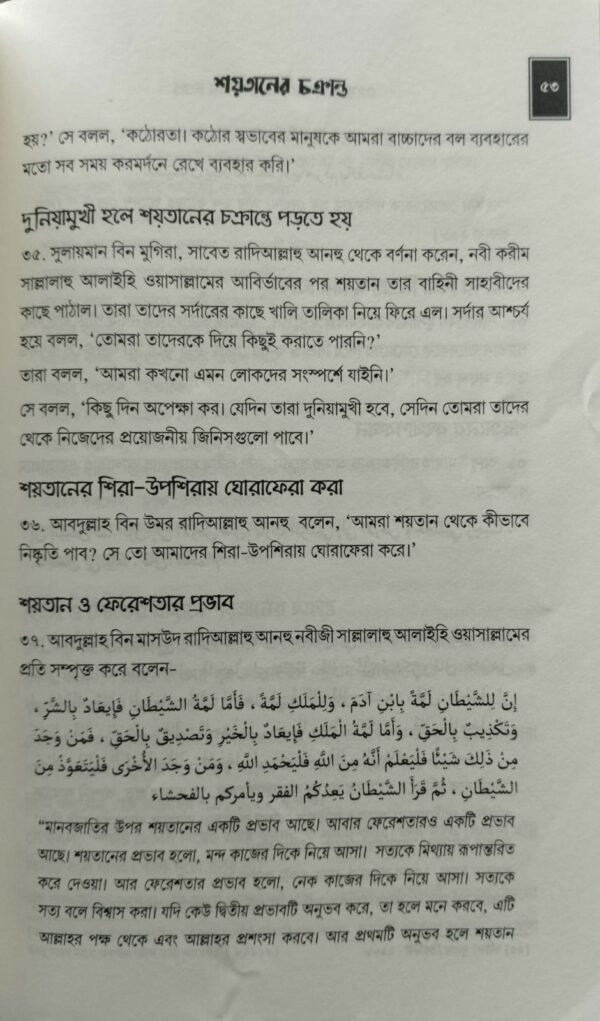 শয়তানের চক্রান্ত
৫৩
হয়?’ সে বলল, ‘কঠোরতা। কঠোর স্বভাবের মানুষকে আমরা বাচ্চাদের বল ব্যবহারের
মতো সব সময় করমর্দনে রেখে ব্যবহার করি।’
দুনিয়ামুখী হলে শয়তানের চক্রান্তে পড়তে হয়
৩৫. সুলায়মান বিন মুগিরা, সাবেত রাদিআল্লাহু আনহু থেকে বর্ণনা করেন, নবী করীম
সাল্লালাহু আলাইহি ওয়াসাল্লামের আবির্ভাবের পর শয়তান তার বাহিনী সাহাবীদের
কাছে পাঠাল। তারা তাদের সর্দারের কাছে খালি তালিকা নিয়ে ফিরে এল। সর্দার আশ্চর্য
হয়ে বলল, ‘তোমরা তাদেরকে দিয়ে কিছুই করাতে পারনি?’
তারা বলল, ‘আমরা কখনো এমন লোকদের সংস্পর্শে যাইনি।’
সে বলল, ‘কিছু দিন অপেক্ষা কর। যেদিন তারা দুনিয়ামুখী হবে, সেদিন তোমরা তাদের
থেকে নিজেদের প্রয়োজনীয় জিনিসগুলো পাবে।’
শয়তানের শিরা-উপশিরায় ঘোরাফেরা করা
৩৬. আবদুল্লাহ বিন উমর রাদিআল্লাহু আনহু বলেন, ‘আমরা শয়তান থেকে কীভাবে
নিষ্কৃতি পাব? সে তো আমাদের শিরা-উপশিরায় ঘোরাফেরা করে।’
শয়তান ও ফেরেশতার প্রভাব
৩৭. আবদুল্লাহ বিন মাসউদ রাদিআল্লাহু আনহু নবীজী সাল্লালাহু আলাইহি ওয়াসাল্লামের
প্রতি সম্পৃক্ত করে বলেন-
إِنَّ لِلشَّيْطَانِ لَمَّةً بِابْنِ آدَمَ ، وَلِلْمَلَكِ لَمَّةً ، فَأَمَّا لَمَّةُ الشَّيْطَانِ فَإِيعَادٌ بِالشَّرِّ ،
وَتَكْذِيبٌ بِالْحَقِّ ، وَأَمَّا لَمَّةُ الْمَلَكِ فَإِيعَادٌ بِالْخَيْرِ وَتَصْدِيقٌ بِالْحَقِّ ، فَمَنْ وَجَدَ
مِنْ ذَلِكَ شَيْئًا فَلْيَعْلَمْ أَنَّهُ مِنَ اللَّهِ فَلْيَحْمَدِ اللَّهِ ، وَمَنْ وَجَدَ الْأُخْرَى فَلْيَتَعَوَّذْ مِنَ
الشَّيْطَانِ ، ثُمَّ قَرَأَ الشَّيْطَانُ يَعِدُكُمُ الفقر ويأمركم بالفحشاء
“মানবজাতির উপর শয়তানের একটি প্রভাব আছে। আবার ফেরেশতারও একটি প্রভাব
আছে। শয়তানের প্রভাব হলো, মন্দ কাজের দিকে নিয়ে আসা। সত্যকে মিথ্যায় রূপান্তরিত
করে দেওয়া। আর ফেরেশতার প্রভাব হলো, নেক কাজের দিকে নিয়ে আসা। সত্যকে
সত্য বলে বিশ্বাস করা। যদি কেউ দ্বিতীয় প্রভাবটি অনুভব করে, তা হলে মনে করবে, এটি
আল্লাহর পক্ষ থেকে এবং আল্লাহর প্রশংসা করবে। আর প্রথমটি অনুভব হলে শয়তান